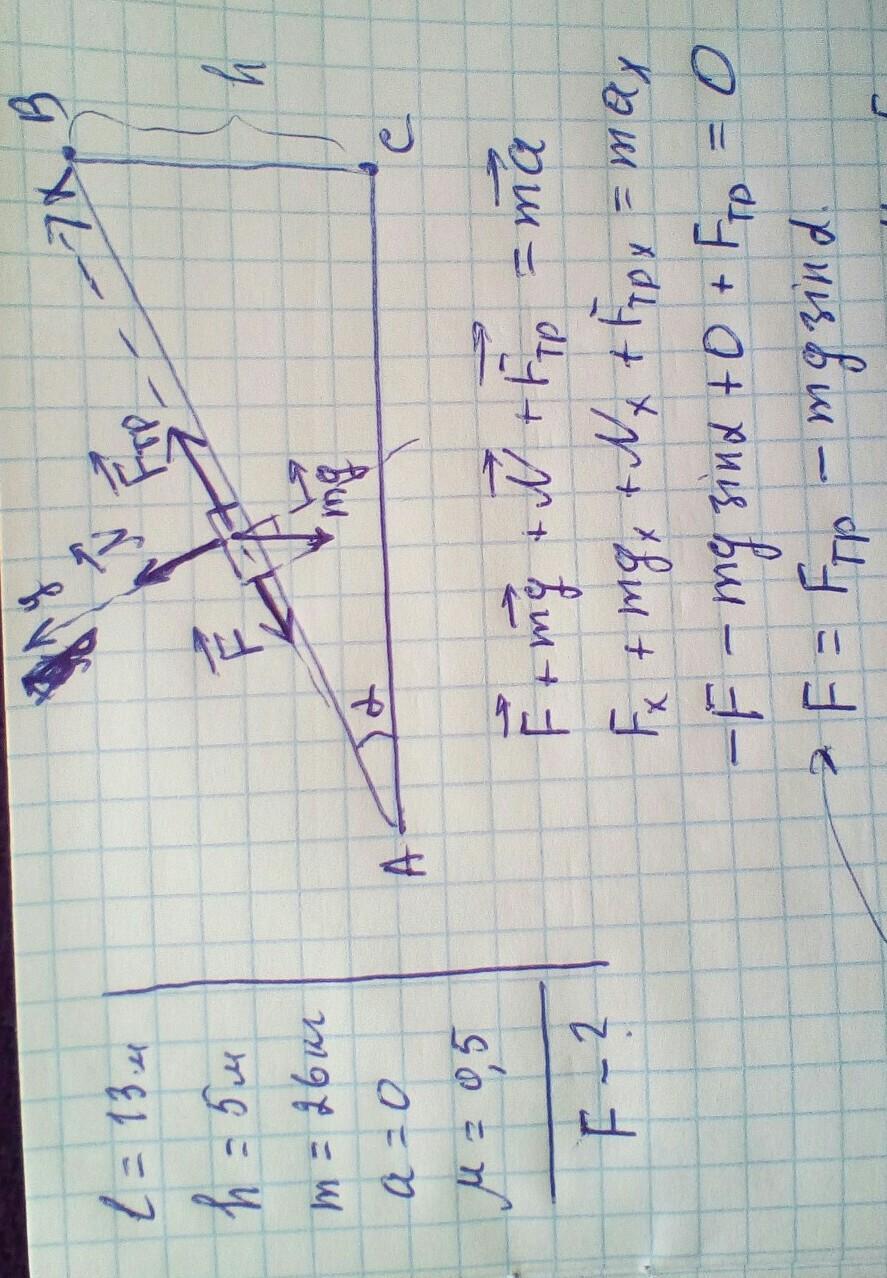 l = 13 м
h = 5 м
m = 26 кг
a = 0
μ = 0,5
F – ?
y
N⃗
F⃗тр
X
B
F⃗
m⃗g
h
A
α
C
F⃗ + m⃗g + N⃗ + F⃗тр = ma⃗
Fx + mgx + Nx + Fтрx = max
–F – mg sinα + 0 + Fтр = 0
F = Fтр – mg sinα.